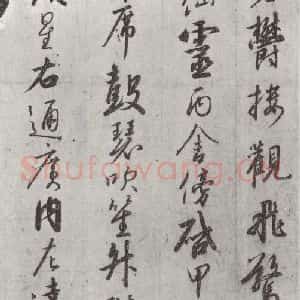 鬱楼觀飛驚
仙靈丙舍傍啓甲
席鼓瑟吹笙升階
星右通廣内左達
Shufawang.cn